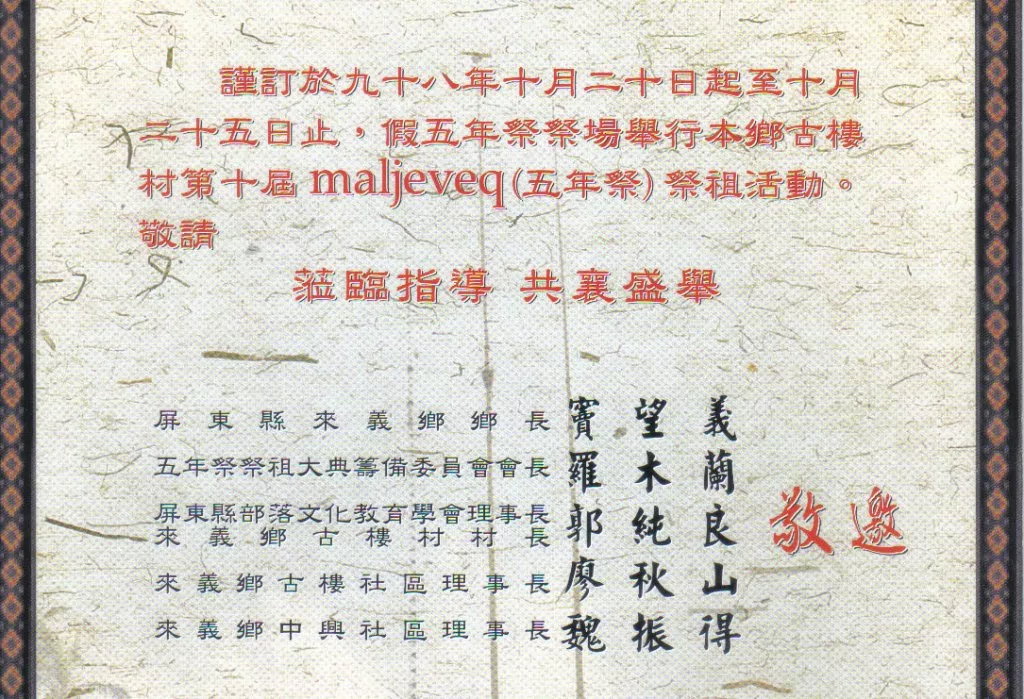 謹訂於九十八年十月二十日起至十月
二十五日止，假五年祭祭場舉行本鄉古樓
村第十屆 maljeveq (五年祭) 祭祖活動。
敬請
蒞臨指導 共襄盛舉
屏東縣來義鄉鄉長 竇望義
五年祭祭祖大典籌備委員會會長 羅木蘭
屏東縣部落文化教育學會理事長
來義鄉古樓村村長 郭純良
來義鄉古樓社區理事長 廖秋山
來義鄉中興社區理事長 魏振得
敬邀